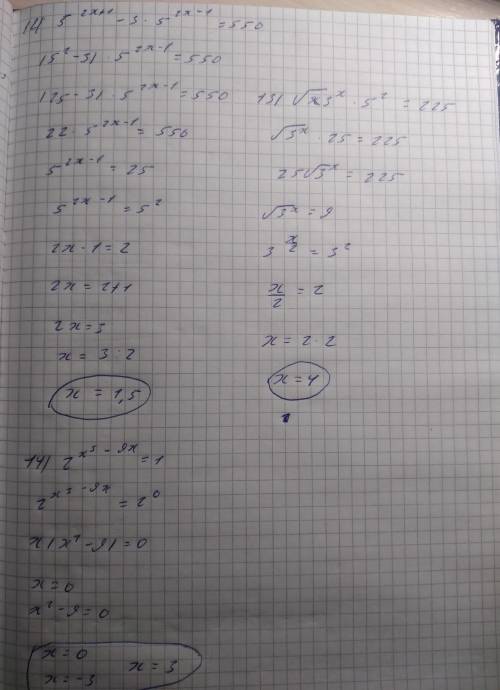 1а) 5^(2x+1) - 3 · 5^(2x-1) = 550
(5² - 3) · 5^(2x-1) = 550
(25 - 3) · 5^(2x-1) = 550
22 · 5^(2x-1) = 550
5^(2x-1) = 25
5^(2x-1) = 5²
2x - 1 = 2
2x = 2+1
2x = 3
x = 3 : 2
x = 1,5
13) √3^x · 5² = 225
√3^x · 25 = 225
25√3^x = 225
√3^x = 9
3^(x/2) = 3²
x/2 = 2
x = 2 · 2
x = 4
14) 2^(x³ - 9x) = 1
2^(x³ - 9x) = 2⁰
x(x² - 9) = 0
x = 0
x² - 9 = 0
x = 0
x = -3 x = 3